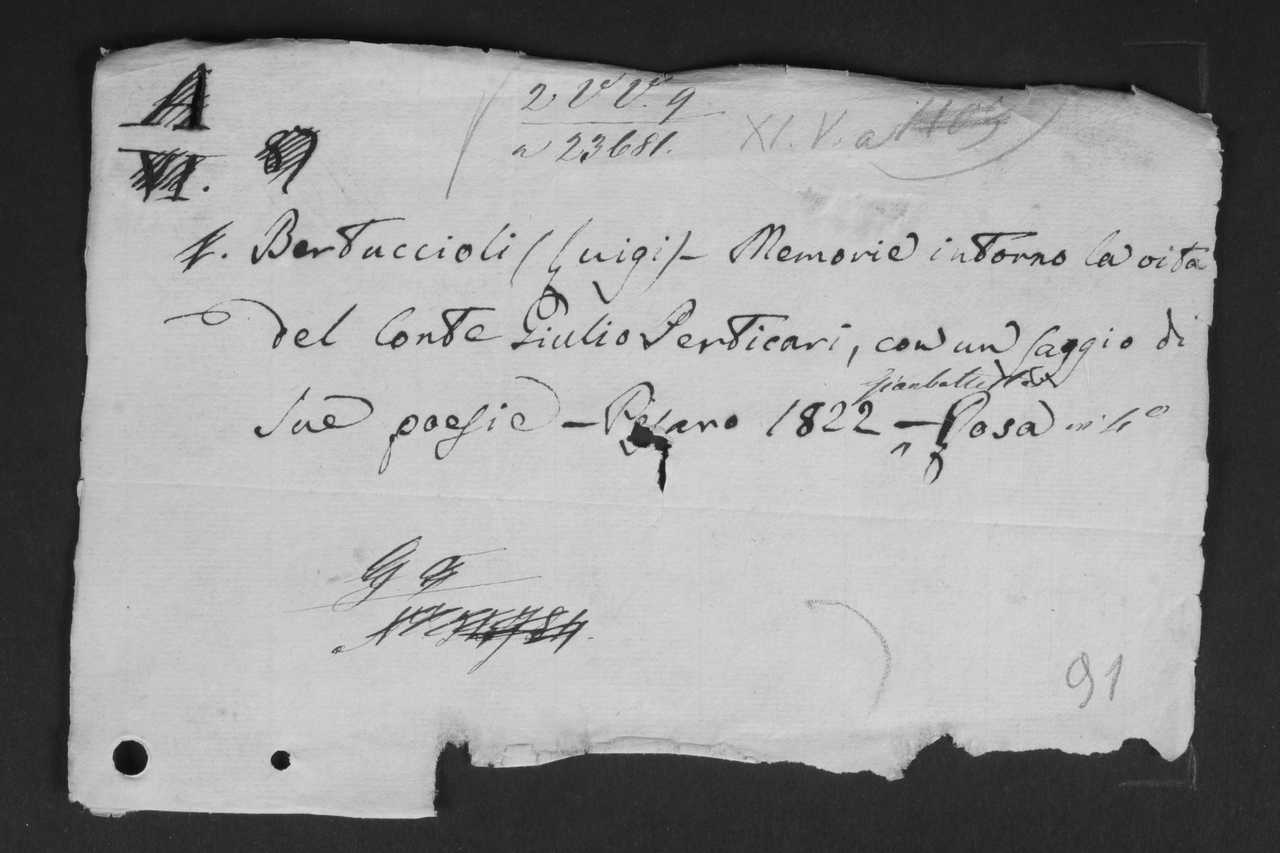 A
VI. 87
2 V V. 9
a 23681.
XI. V. a
f. Bertuccioli (Luigi) - Memorie intorno la vita
del Conte Giulio Perticari, con un saggio di
Gianbattista
sue poesie - Pesaro 1822 - Rosa in 4°
91